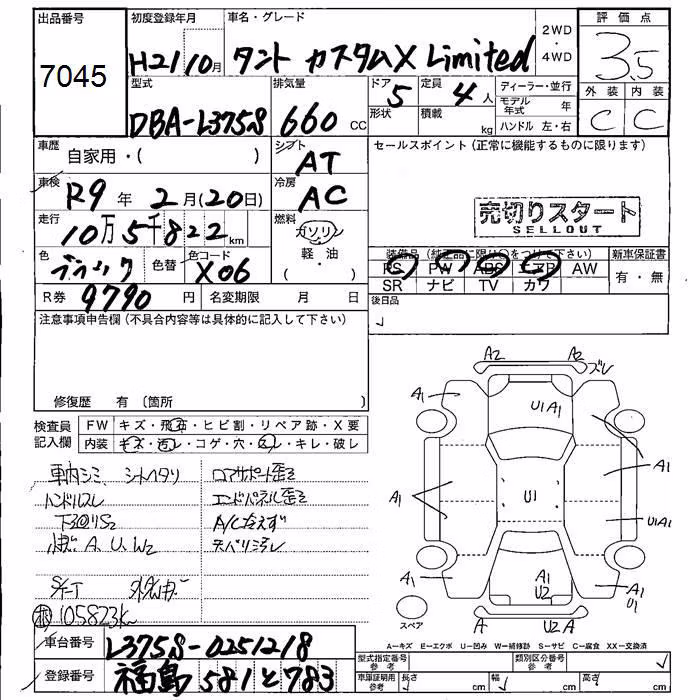 出品番号
7045
初度登録年月
H21 10月
車名・グレード
タント カスタムX Limited
2WD
・
4WD
評価点
3.5
外装 内装
C C
型式
DBA-L375S
排気量
660 cc
ドア
5
形状
定員
4人
積載
kg
ディーラー・並行
モデル年式 年
ハンドル 左・右
車歴
自家用・( )
シフト
AT
車検
R9年2月(20日)
冷房
AC
走行
10万5千822km
燃料
ガソリン
軽・油
( )
色
ブラック
色替
色コード
X06
R券 9790円
名変期限 月 日
セールスポイント(正常に機能するものに限ります)
売切りスタート
SELLOUT
装備品(純正品に限り○をつけて下さい)
PS PW ABS エアB AW
SR ナビ TV カワ
新車保証書
有・無
後日品
注意事項申告欄(不具合内容等は具体的に記入して下さい)
修復歴 有〔箇所 〕
検査員
記入欄
FW キズ・飛石・ヒビ割・リペア跡・X要
内装 キズ・汚レ・コゲ・穴・スレ・キレ・破レ
車内シミ シートヘタリ
ハンドルスレ
下廻りS2
A、U、W2
コアサポート歪
エンドパネル歪
A/C
105823k
車台番号
L375S-0251218
登録番号
福島 581 と 783
A2 A2 ズレ
A1
U1 A1
A1
A1
U1
U1A1
A1
A1
U2
A1
U1
スペア
A
U2 A
A-キズ E-エクボ U-凹み W-補修跡 S-サビ C-腐食 XX-交換済
型式指定番号
参考
類別区分番号
参考
車庫証明用
参考
長さ cm
幅 cm
高さ cm